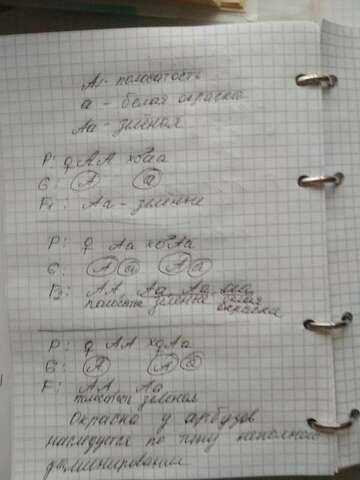 А - полосатость
а - белая окраска
Аа - зелёная
P: ♀ АА х ♂ аа
G: А а
F1: Аа - зелёные
P: ♀ Аа х ♂ Аа
G: А а А а
АА Аа Аа аа
полосатые зелёные белая
окраска
P: ♀ АА х ♂ Аа
G: А А а
F: АА Аа
полосатые зелёная
Окраска у арбузов
наследуется по типу неполного
доминирования